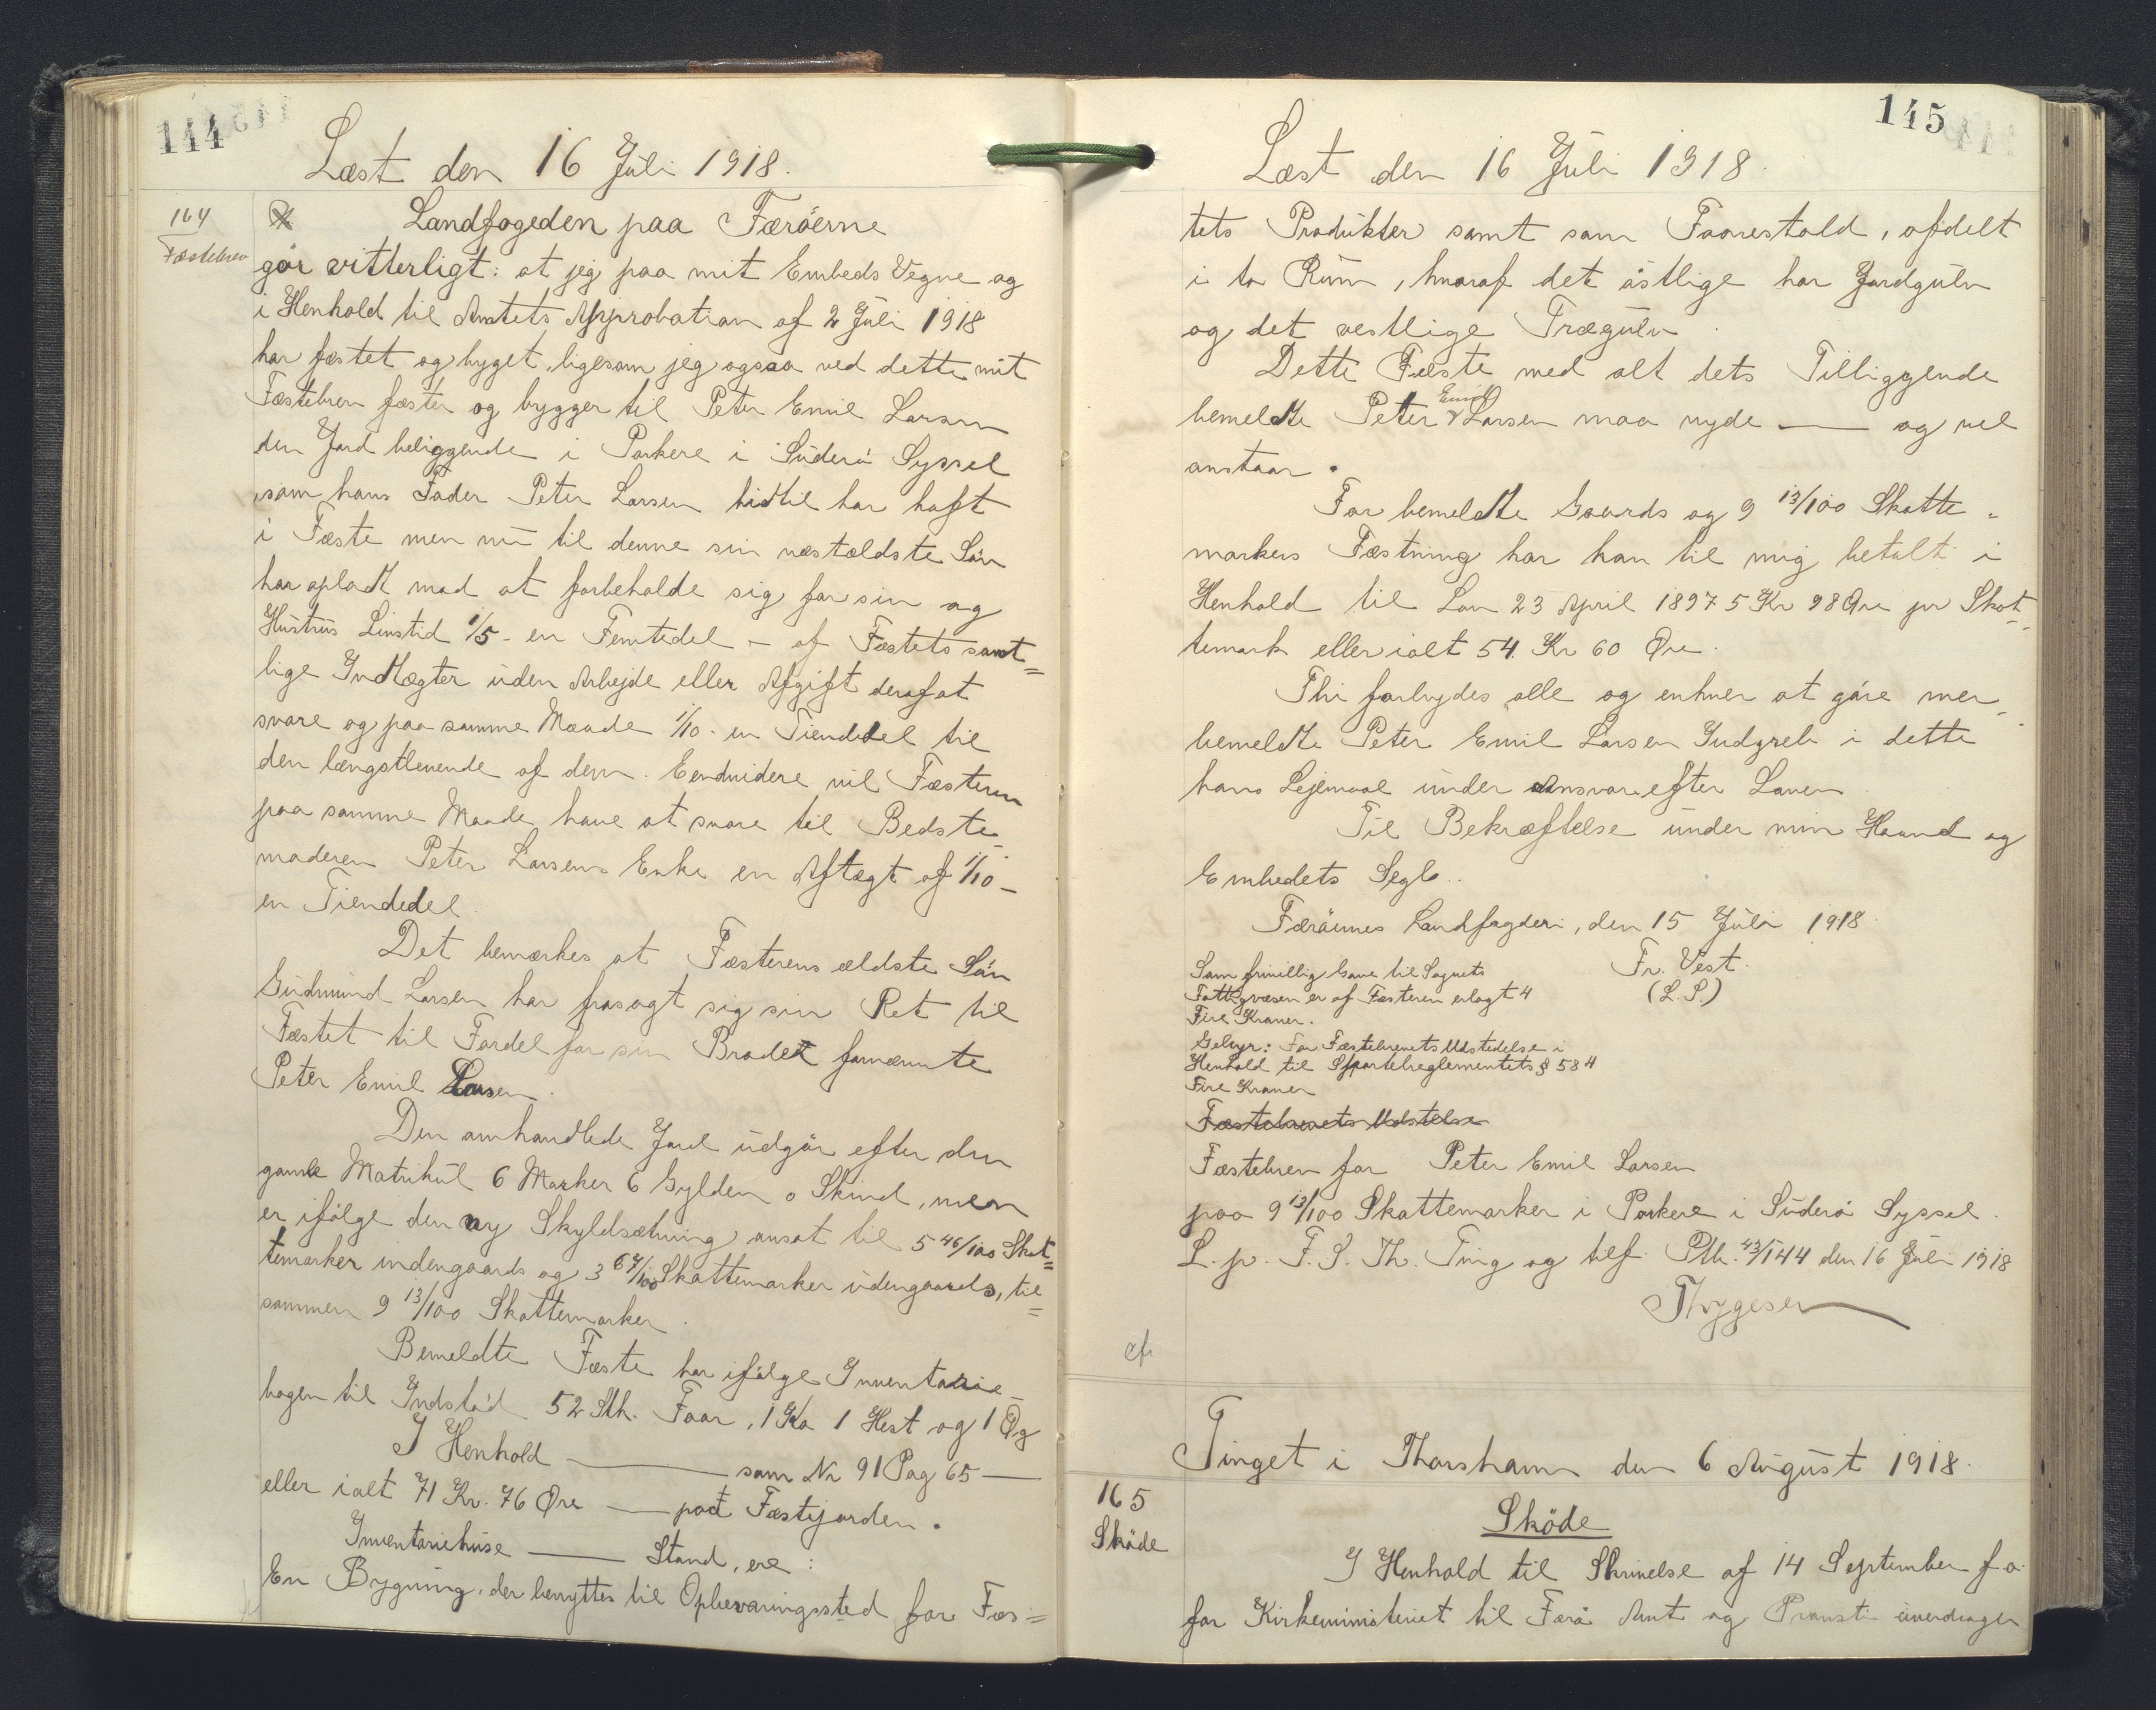 144
Læst den 16 Juli 1918.
164
Fæstebrev
Landfogeden paa Færöerne
gör vitterligt: at jeg paa mit Embeds Vegne og
i Henhold til Amtets Approbation af 2 Juli 1918
har fæstet og byget, ligesom jeg ogsaa ved dette mit
Fæstebrev fæster og bygger til Peter Emil Larsen
den Jord beliggende i Porkere i Süderö Syssel
som hans Fader Peter Larsen hidtil har haft
i Fæste men nu til denne sin næstældste Sön
har opladt mod at forbeholde sig for sin og
Hustrus Livstid 1/5 - en Femtedel - af Fæstets samt=
lige Indtægter uden Arbejde eller Afgift deraf at
svare og paa samme Maade 1/10 - en Tiendedel til
den længstlevende af dem. Eendvidere vil Fæsteren
paa samme Maade have at svare til Bedste-
moderen Peter Larsens Enke en Aftægt af 1/10 -
en Tiendedel.
Det bemærkes at Fæsterens ældste Sön
Gudmund Larsen har frasagt sig sin Ret til
Fæstet til Fordel for sin Broder fornævnte
Peter Emil Larsen.
Den omhandlede Jord udgör efter den
gamle Matrikul 6 Marker 6 Gylden 0 Skind, men
er ifölge den ny Skyldsætning ansat til 5 46/100 Skat=
temarker indengaards og 3 67/100 Skattemarker udengaards, til=
sammen 9 13/100 Skattemarker.
Bemeldte Fæste har ifölge Inventarie-
bogen til Indstöd 52 Stk. Faar, 1 Ko 1 Hest og 1 Øg
I Henhold —— som Nr 91 Pag 65 ——
eller ialt 71 Kr. 76 Øre —— paa Fæstejorden.
Inventariehuse —— Stand, ere:
En Bygning, der benyttes til Opbevaringssted for Fæs=
145
Læst den 16 Juli 1918.
tets Produkter samt som Faarestald, afdelt
i to Rum, hvoraf det östlige har Jordgulv
og det vestlige Trægulv.
Dette Fæste med alt dets Tilliggende
bemeldte Peter Emil Larsen maa nyde —— og vel
anstaar.
For bemeldte Gaards og 9 13/100 Skatte=
markers Fæstning har han til mig betalt i
Henhold til Lov 23 April 1897 5 Kr 98 Øre pr Skat=
temark eller ialt 54. Kr 60 Øre.
Thi forbydes alle og enhver at göre mer=
bemeldte Peter Emil Larsen Indgreb i dette
hans Lejemaal under Ansvar efter Loven.
Til Bekræftelse under min Haand og
Embedets Segl..
Færöernes Landfogderi, den 15 Juli 1918.
Fr. Vest.
(L. S.)
Som frivillig Gave til Sognets
Fattigvæsen er af Fæsteren erlagt 4
Fire Kroner.
Gebyr: For Fæstebrevets Udstedelse i
Henhold til Sportelreglementets § 58 4
Fire Kroner
Fæstebrevets Udstelse
Fæstebrev for Peter Emil Larsen
paa 9 13/100 Skattemarker i Porkere i Süderö Syssel.
L. p. F. S. Th. Ting og tilf. Ptk. 43/144 den 16 Juli 1918
Thygesen
cfr
Tinget i Thorshavn den 6 August 1918.
165
Sköde
Sköde
I Henhold til Skrivelse af 14 September f. a.
for Kirkeministeriet til Færö Amt og Provsti överdrager